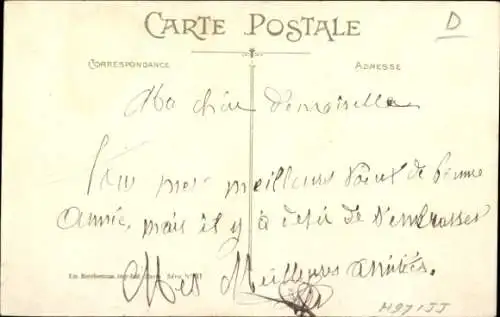 CARTE POSTALE
D
CORRESPONDANCE
ADRESSE
Ma chère Demoiselle
mes meilleurs vœux de bonne
Année, mais il y a désir de t'embrasser
Mes Meilleures amitiés.
H971JJ